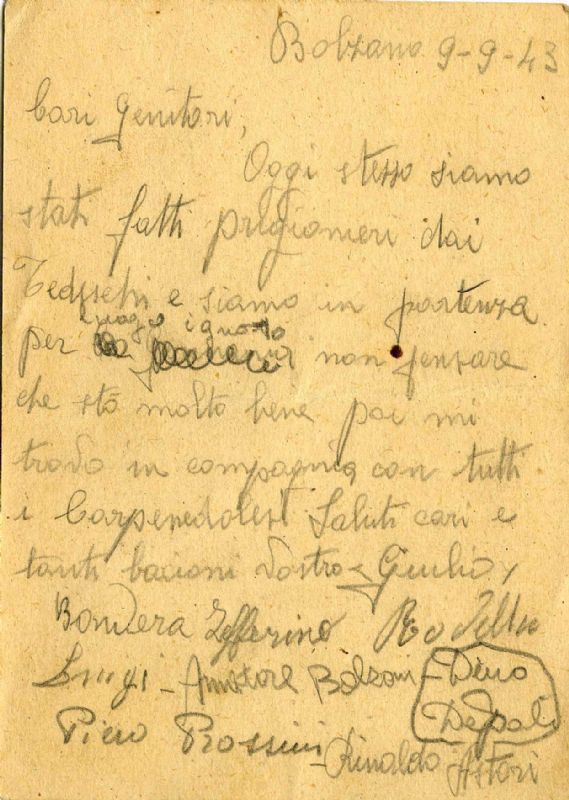 Bolzano 9-9-43
Cari Genitori,
Oggi stesso siamo
stati fatti prigionieri dai
Tedeschi e siamo in partenza
luogo ignoto
per non pensare
che stò molto bene poi mi
trovo in compagnia con tutti
i Carpenedolesi Saluti cari e
tanti bacioni Vostro Giulio
Bondera Zefferino
Luigi - Amatore Bolzoni - Dino
Depali
Piero Rossini - Rinaldo Astori